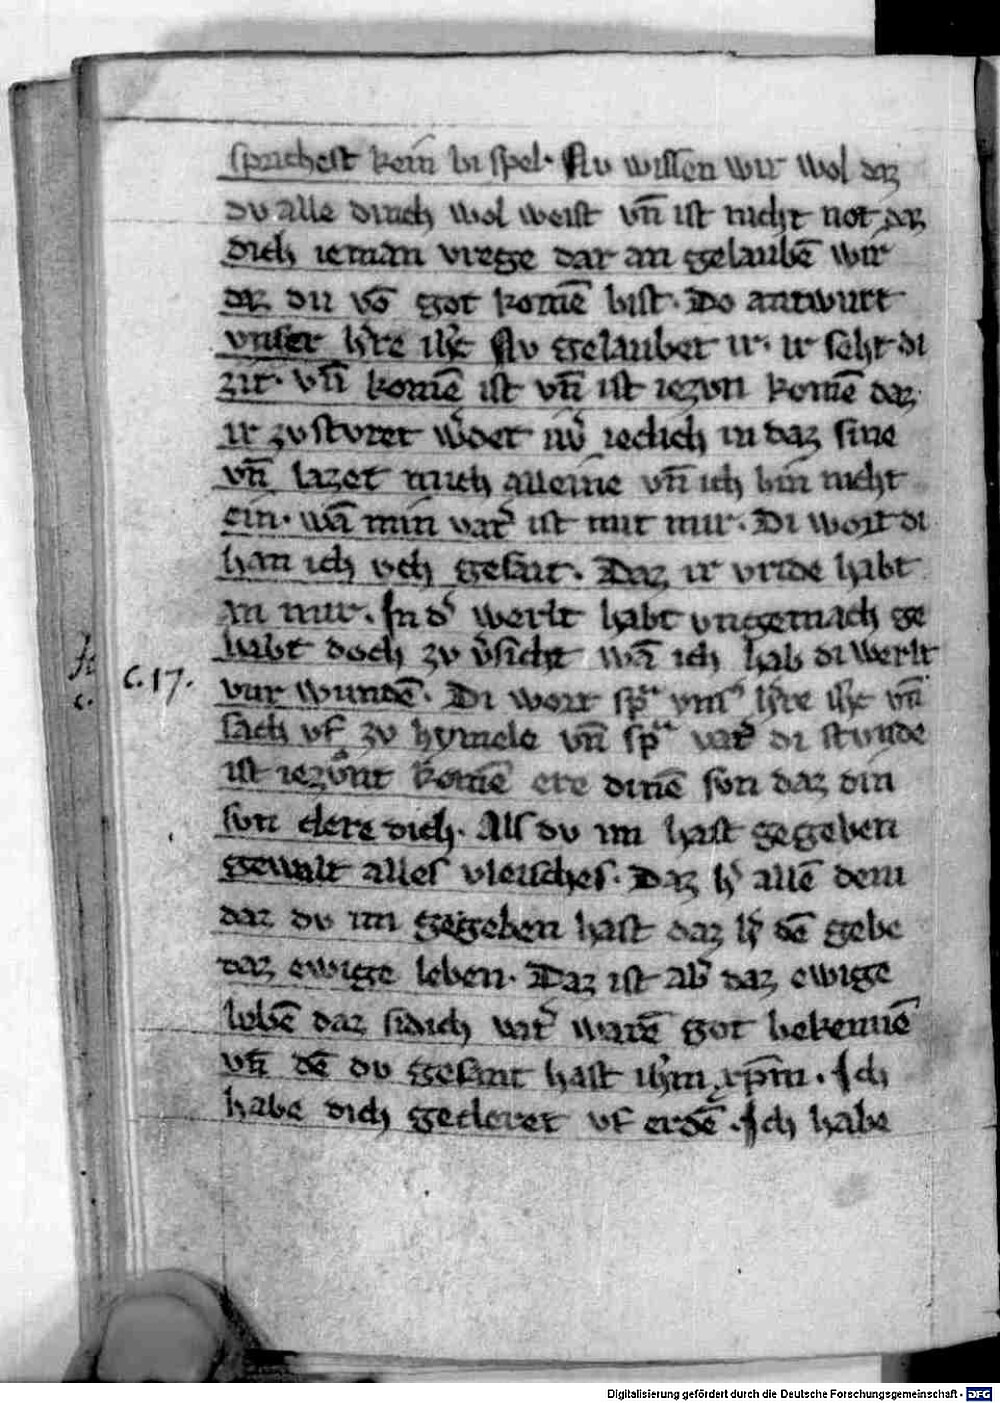 sprichest kein bi spel· Nv wissen wir wol daz
dv alle dinch wol weist vn̄ ist nicht not daz
dich ieman vrege dar an gelaubē wir
daz du vō got komē bist· Do antwurt
vnser h̓re ih̓c Nv gelaubet ir· ir seht di
zit· vn̄ komē ist vn̄ ist iezvn komē daz
ir zvstvret w̓det iuw̓ ieclich in daz sine
vn̄ lazet mich alleine vn̄ ich bin nicht
ein· wā min vat̓ ist mit mir· Di wort di
han ich vch gesait· Daz ir vride habt
an mir· In d̓ werlt habt vngemach ge
habt doch zv v̓sicht wā ich hab di werlt
c. 17.
vur wundē· Di wort sp̾ᵃ vns̓ h̓re ih̓c vn̄
sach vf zv hymele vn̄ sp̾ᵃ vat̓ di stunde
ist iezvnt komē ere dinē sun daz din
sun clere dich· Als dv im hast gegeben
gewalt alles vleisches· Daz h̓ allē dem
daz dv im gegeben hast daz h̓ dē gebe
daz ewige leben· Daz ist ab̓ daz ewige
lebē daz si dich vat̓ warē got bekennē
vn̄ dē dv gesant hast ih̓m xp̄m· Ich
habe dich gecleret vf erdē· Ich habe
Digitalisierung gefördert durch die Deutsche Forschungsgemeinschaft - DFG